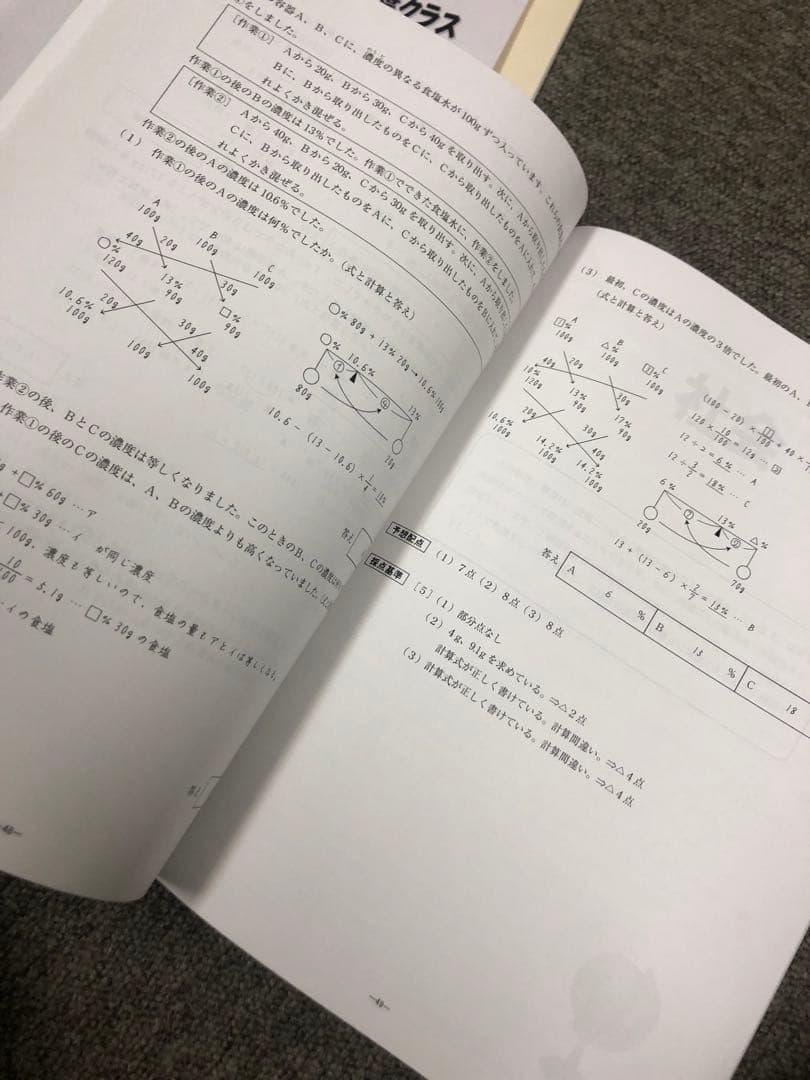 クラス
容器A、B、Cに、濃度の異なる食塩水が100gずつ入っています。これらの
をしました。
[作業①] Aから20g、Bから30g、Cから40gを取り出す。次に、Aから取り出し
Bに、Bから取り出したものをCに、Cから取り出したものをAに入れ
れよくかき混ぜる。
作業①の後のBの濃度は13%でした。作業①でできた食塩水に、作業②をしました。
[作業②] Aから40g、Bから20g、Cから30gを取り出す。次に、Aから取り
Cに、Bから取り出したものをAに、Cから取り出したものをBに入れ
れよくかき混ぜる。
作業②の後のAの濃度は10.6%でした。
(1) 作業①の後のAの濃度は何%でしたか。(式と計算と答え)
A
100g
B
100g
C
100g
40g
20g
30g
○%
120g
13%
90g
□%
90g
20g
30g
40g
10.6%
100g
100g
100g
○% 80g + 13% 20g → 10.6% 100g
○%
10.6%
13%
① ④
80g
20g
10.6 − (13 − 10.6) × 1/4 = 10%
答え
作業②の後、BとCの濃度は等しくなりました。このときのB、Cの濃度は
作業①の後のCの濃度は、A、Bの濃度よりも高くなっていました。
+ □% 60g … ア
+ □% 30g … イ が同じ濃度
100g、濃度も等しいので、食塩の量もアとイは等しくなる。
= 5.1g … □% 30gの食塩
イの食塩
答え
―48―
(3) 最初、Cの濃度はAの濃度の3倍でした。最初のA、B
(式と計算と答え)
A
①%
100g
B
△%
100g
C
100g
40g
20g
30g
10%
120g
13%
90g
17%
90g
20g
30g
40g
10.6%
100g
14.2%
100g
14.2%
100g
120 × 10/100 = 12g …
12 ÷ 2 = 6% … A
12 ÷ 3/2 = 18% … C
6%
13%
△%
20g
70g
13 + (13 − 6) × 2/7 = 15% … B
答え
A 6 % B 15 % C 18
予想配点 (1) 7点 (2) 8点 (3) 8点
採点基準 [5] (1) 部分点なし
(2) 4g、9.1gを求めている。⇒△2点
計算式が正しく書けている。計算間違い。⇒△4点
(3) 計算式が正しく書けている。計算間違い。⇒△4点
―49―